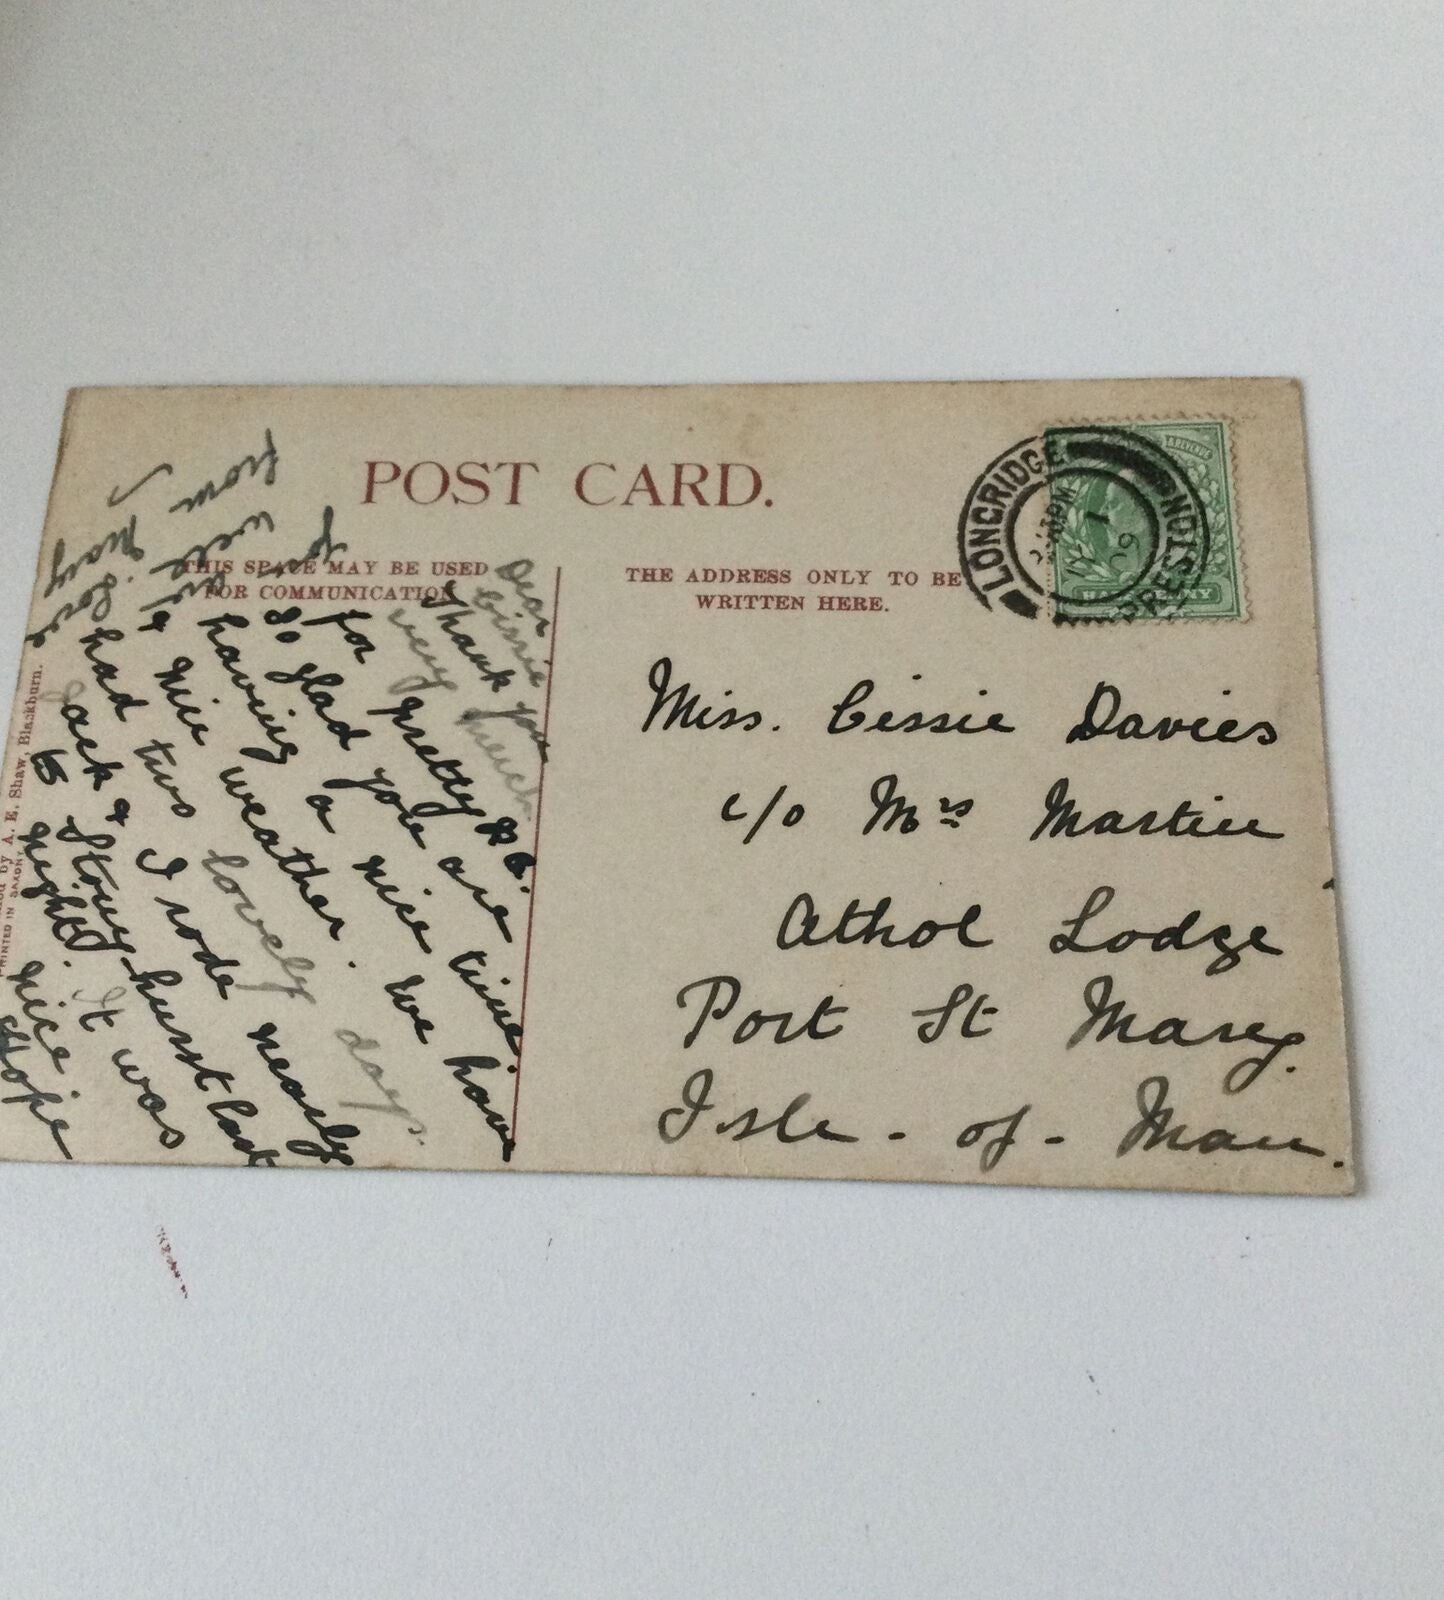 POST CARD.
THIS SPACE MAY BE USED
FOR COMMUNICATION
THE ADDRESS ONLY TO BE
WRITTEN HERE.
LONGRIDGE
PRESTON
HALFPENNY
Miss. Cissie Davies
c/o Mrs Martin
Athol Lodge
Port St Mary.
Isle - of - Man.
Dear
Cissie
Thank you
very much
for pretty P. C.
So glad you are
having a nice time.
& nice weather. We have
had two lovely days.
Jack & I rode nearly
to Stonyhurst last
night. It was
nice. Hope
you
are
well
from
May
by A. E. Shaw, Blackburn.
PRINTED IN SAXONY